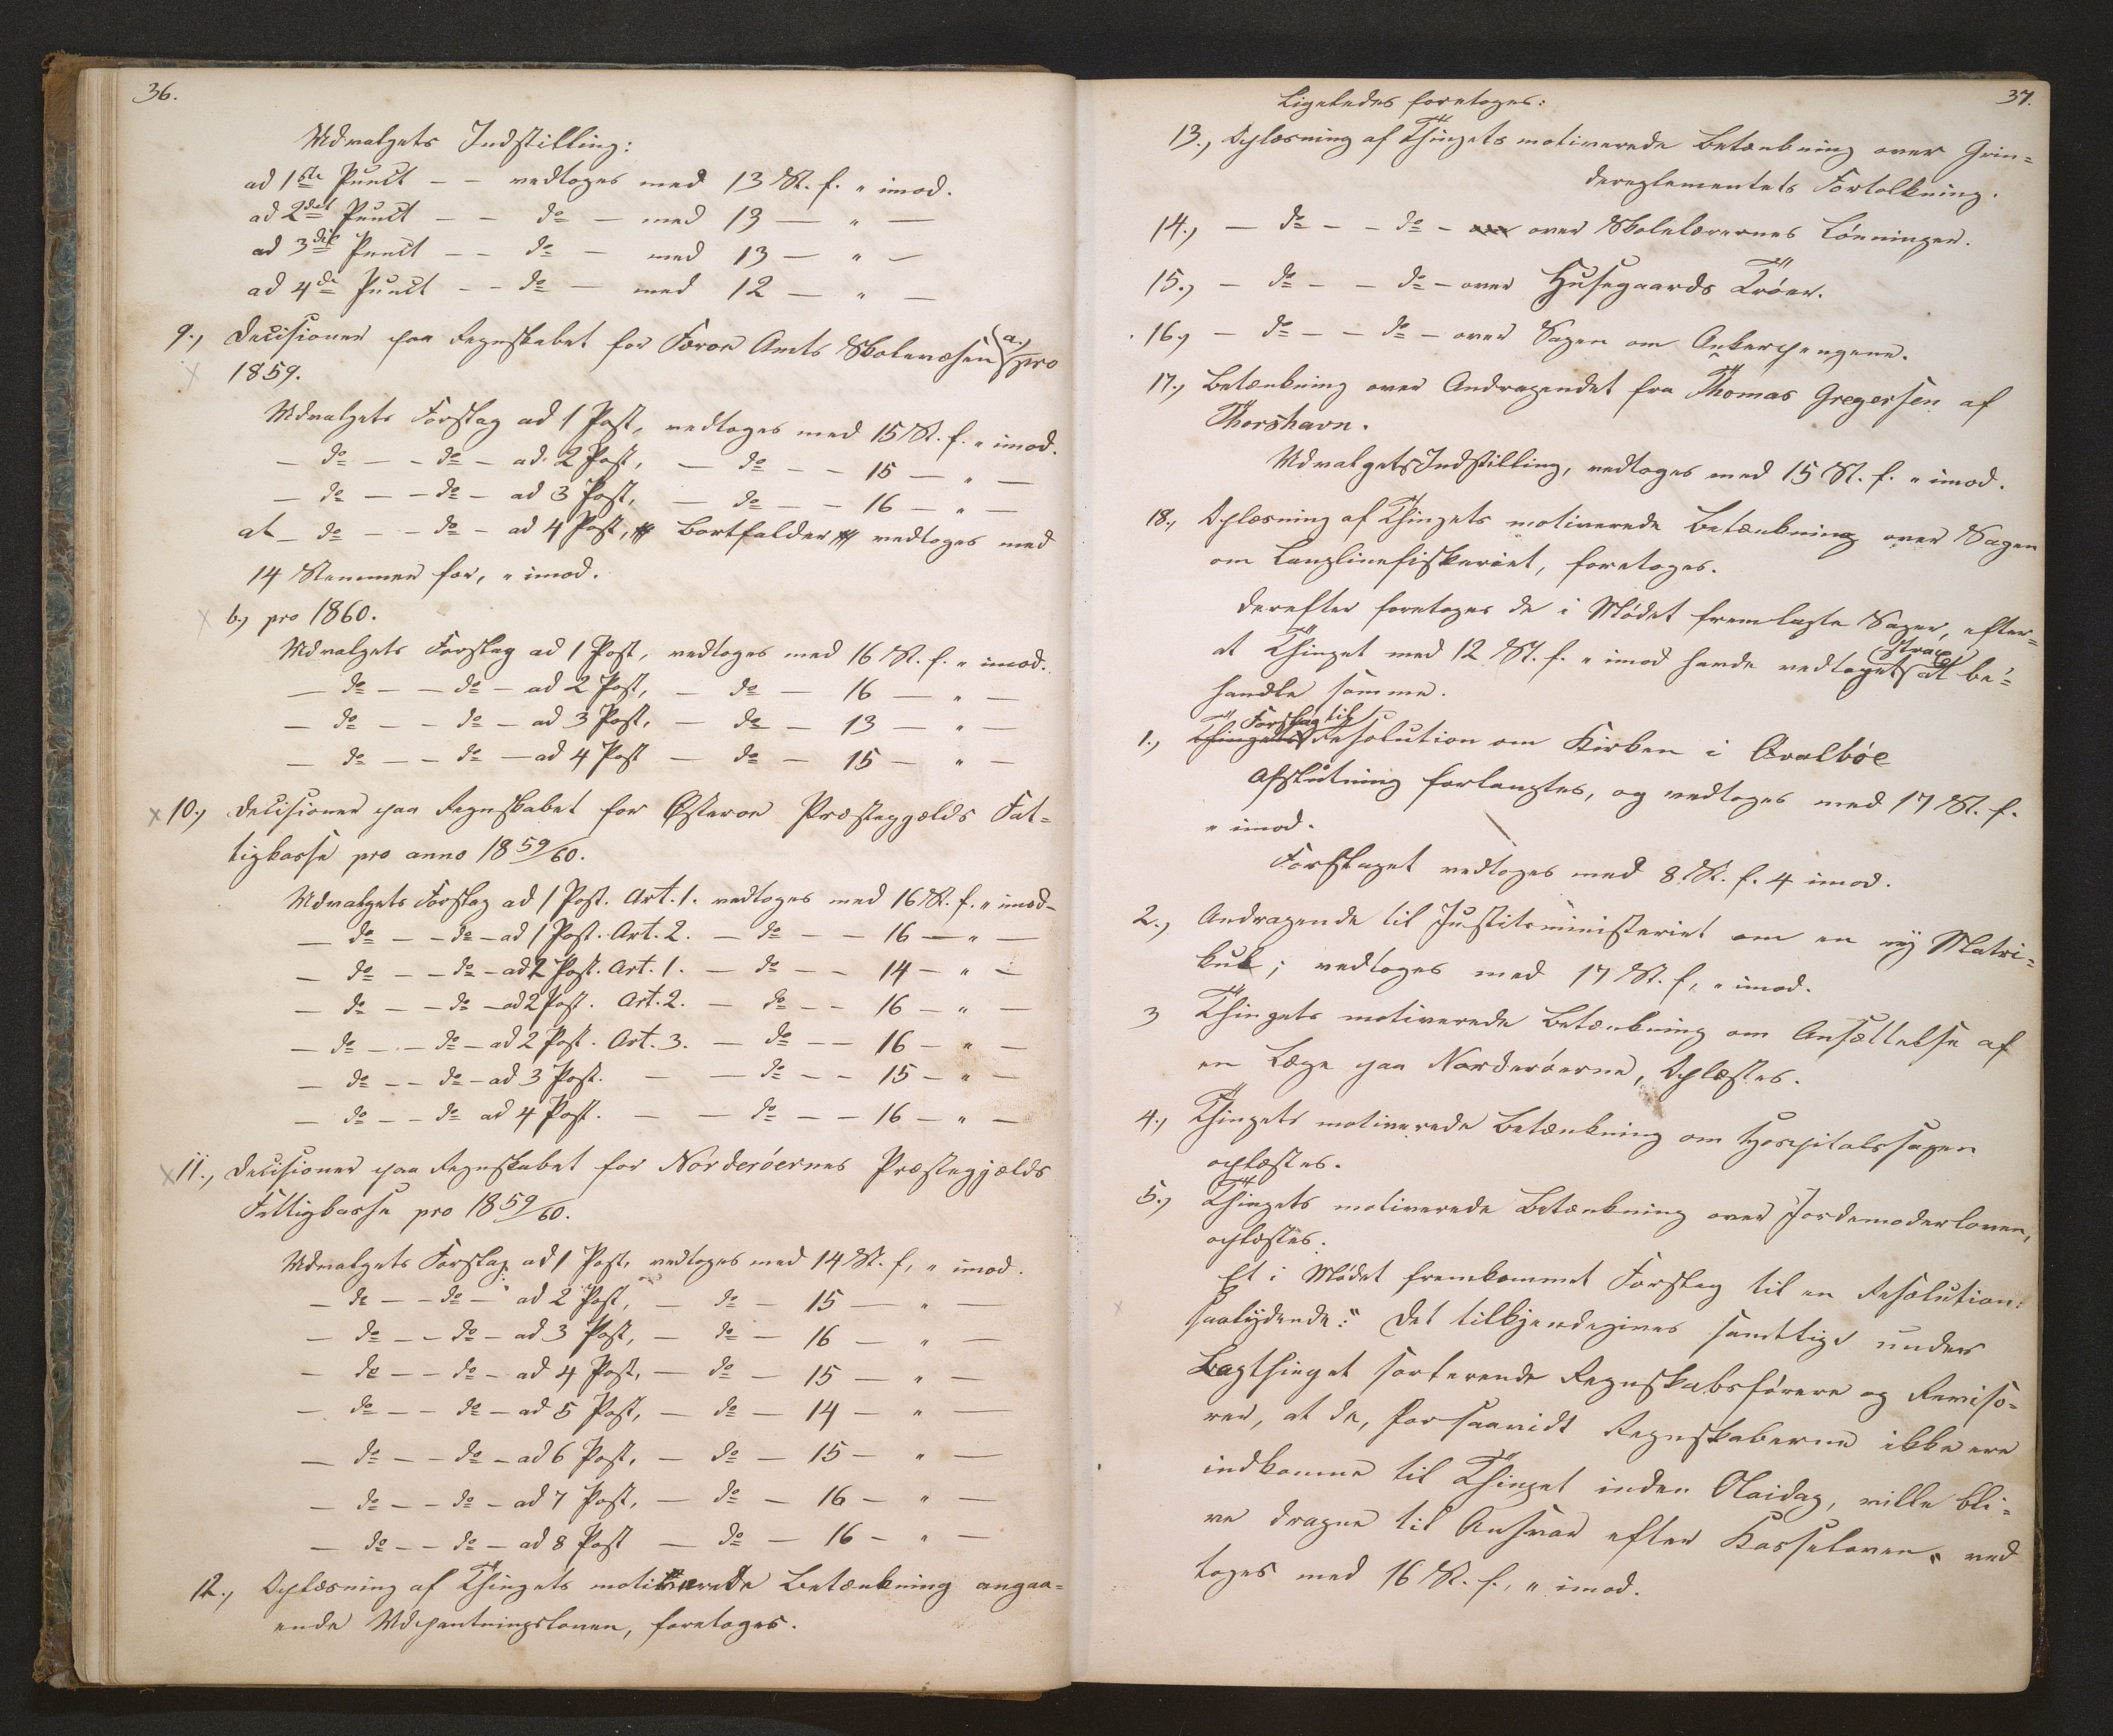 36.
Udvalgets Indstilling:
ad 1ste Punct - - vedtoges med 13 St. f. " imod.
ad 2det Punct - - do - med 13 — " —
ad 3die Punct - - do - med 13 — " —
ad 4de Punct - - do - med 12 — " —
9., Decisioner paa Regnskabet for Færøe Amts Skolevæsen a., pro
1859.
Udvalgets Forslag ad 1 Post, vedtoges med 15 St. f. " imod.
— do — - do - ad 2 Post, — do - - 15 — " —
— do — - do - ad 3 Post, — do - - 16 — " —
at — do — - do - ad 4 Post, bortfalder vedtoges med
14 Stemmer for, " imod.
b., pro 1860.
Udvalgets Forslag ad 1 Post, vedtoges med 16 St. f. " imod.
— do — - do - ad 2 Post, — do — 16 — " —
— do — - do - ad 3 Post, — do — 13 — " —
— do — - do - ad 4 Post — do — 15 — " —
10., Decisioner paa Regnskabet for Østerøe Præstegjælds Fat=
tigkasse pro anno 1859/60.
Udvalgets Forslag ad 1 Post. Art. 1. vedtoges med 16 St. f. " imod-
— do — - do - ad 1 Post. Art. 2. — do - - 16 — " —
— do — - do - ad 2 Post. Art. 1. — do - - 14 — " —
— do — - do - ad 2 Post. Art. 2. — do - - 16 — " —
— do — - do - ad 2 Post. Art. 3. — do - - 16 — " —
— do - - do - ad 3 Post. — — do - - 15 — " —
— do - - do ad 4 Post. — — do - - 16 — " —
11., Decisioner paa Regnskabet for Norderøernes Præstegjælds
Fattigkasse pro 1859/60.
Udvalgets Forslag ad 1 Post, vedtoges med 14 St. f, " imod.
— do — - do - ad 2 Post, — do — 15 — " —
— do — - do - ad 3 Post, — do — 16 — " —
— do — - do - ad 4 Post, — do — 15 — " —
— do — - do - ad 5 Post, — do — 14 — " —
— do — - do - ad 6 Post, — do — 15 — " —
— do — - do - ad 7 Post, — do — 16 — " —
— do — - do - ad 8 Post — do — 16 — " —
12., Oplæsning af Thingets motiverede Betænkning angaa=
ende Udpantningsloven, foretoges.
37.
Ligeledes foretoges:
13., Oplæsning af Thingets motiverede Betænkning over Grin=
dereglementets Fortolkning.
14., — do - - do - over over Skolelærernes Lønninger.
15., — do - - do - over Husegaards Trøer.
16., — do - - do - over Sagen om Ankerpengene.
17., Betænkning over Andragendet fra Thomas Gregersen af
Thorshavn.
Udvalgets Indstilling, vedtoges med 15 St. f. " imod.
18., Oplæsning af Thingets motiverede Betænkning over Sagen
om Langlinefiskeriet, foretoges.
Derefter foretoges de i Mødet fremlagte Sager, efter=
at Thinget med 12 St. f. " imod havde vedtaget strax at be=
handle samme.
1., Thingets Forslag til Resolution om Kirken i Qvalbøe
Afslutning forlangtes, og vedtoges med 17 St. f.
" imod.
Forslaget vedtoges med 8 St. f. 4 imod.
2., Andragende til Justitsministeriet om en ny Matri=
kul; vedtoges med 17 St. f, " imod.
3 Thingets motiverede Betænkning om Ansættelse af
en Læge paa Norderøerne, Oplæstes.
4., Thingets motiverede Betænkning om Hospitalssagen
oplæstes.
5., Thingets motiverede Betænkning over Jordemoderloven,
oplæstes.
Et i Mødet fremkommet Forslag til en Resolution:
saalydende: "Det tilkjendegives samtlige under
Lagthinget sorterende Regnskabsførere og Reviso=
rer, at de, forsaavidt Regnskaberne ikke ere
indkomne til Thinget inden Olaidag, ville bli=
ve dragne til Ansvar efter Kasseloven" ved
toges med 16 St. f., " imod.